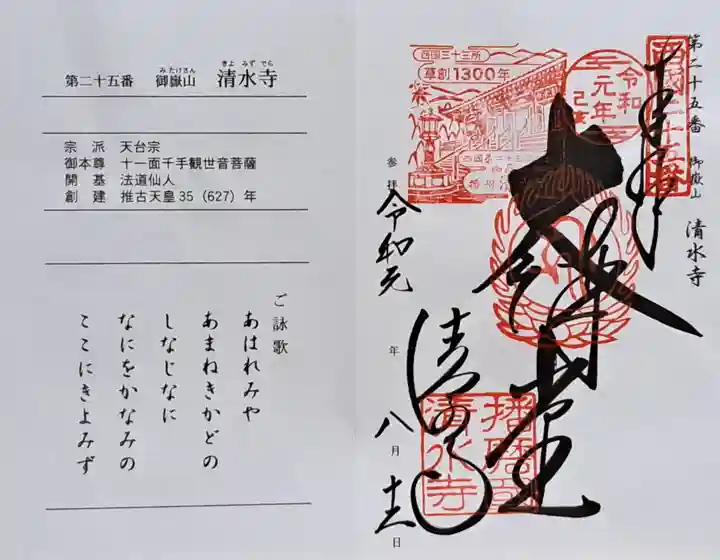 第二十五番 御嶽山 清水寺
みたけさん きよ みず でら
宗 派 天台宗
御本尊 十一面千手観世音菩薩
開 基 法道仙人
創 建 推古天皇35（627）年
ご詠歌
あはれみや
あまねきかどの
しなじなに
なにをかなみの
ここにきよみず
第二十五番 御嶽山 清水寺
西國二十五番
奉拝
西国三十三所
草創1300年
令和
元年
己亥
大講堂
参拝 令和元年八月十二日
清水寺
播磨国
清水寺